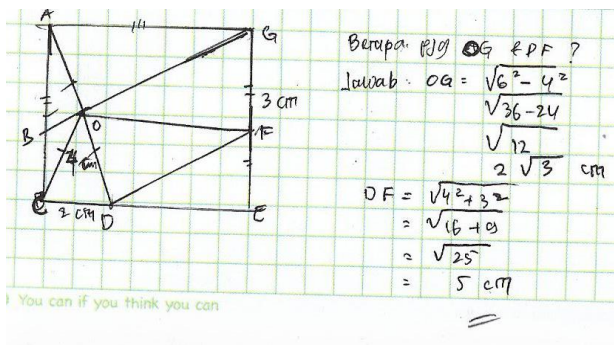 A
G
B
O
3 cm
F
4 cm
C
2 cm
D
E
Berapa pjg OG & DF ?
Jawab : OG = √6² - 4²
√36 - 24
√12
2 √3 cm
DF = √4² + 3²
= √16 + 9
= √25
= 5 cm
You can if you think you can